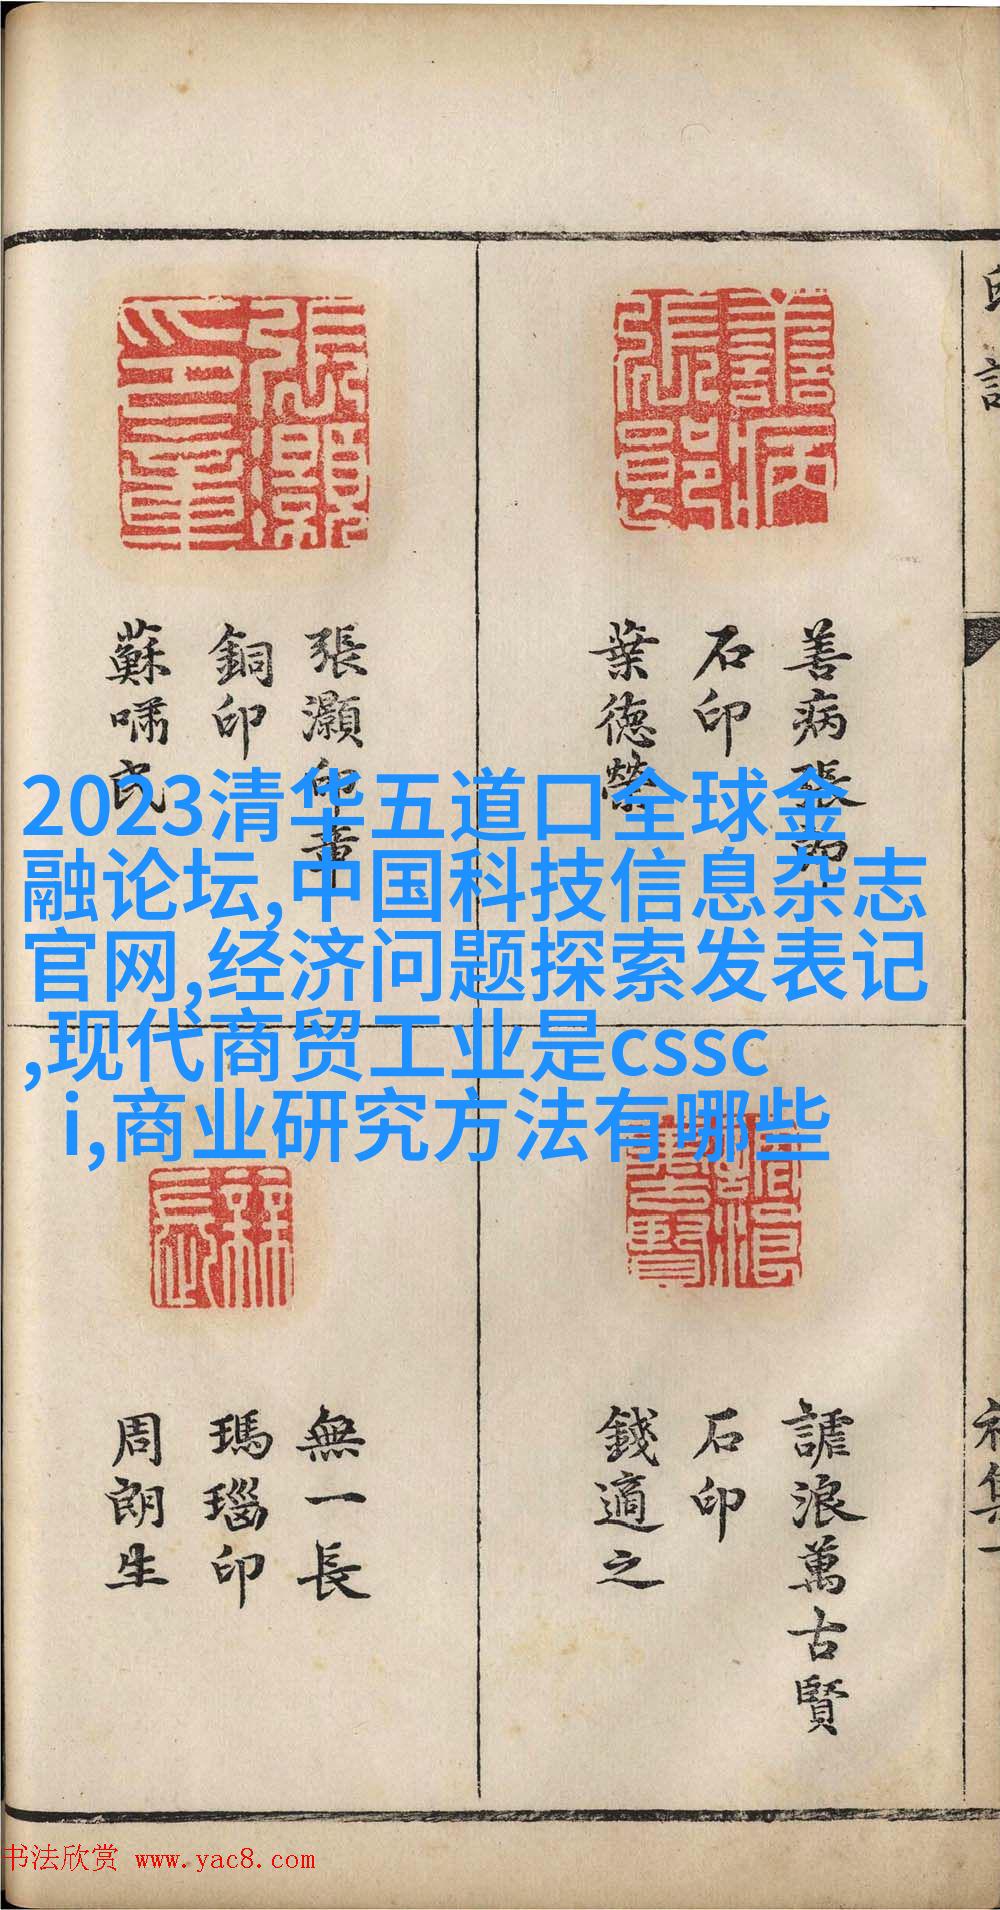 善病張郎
石印
葉德榮
張灝印章
銅印
蘇嘯民
2023清华五道口全球金
融论坛,中国科技信息杂志
官网,经济问题探索发表记
,现代商贸工业是cssc
i,商业研究方法有哪些
謔浪萬古賢
石印
錢適之
無一長
瑪瑙印
周朗生
初集一
书法欣赏 www.yac8.com